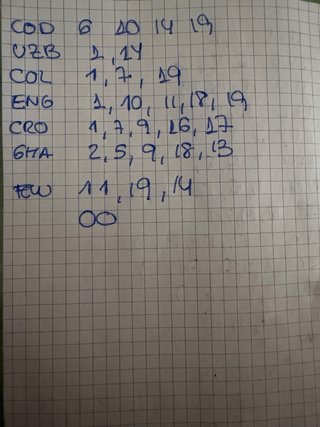 COD 6 10 14 19
UZB 1, 14
COL 1, 7, 19
ENG 1, 10, 11, 18, 19
CRO 1, 7, 9, 16, 17
GHA 2, 5, 9, 18, 13
11, 19, 14
00